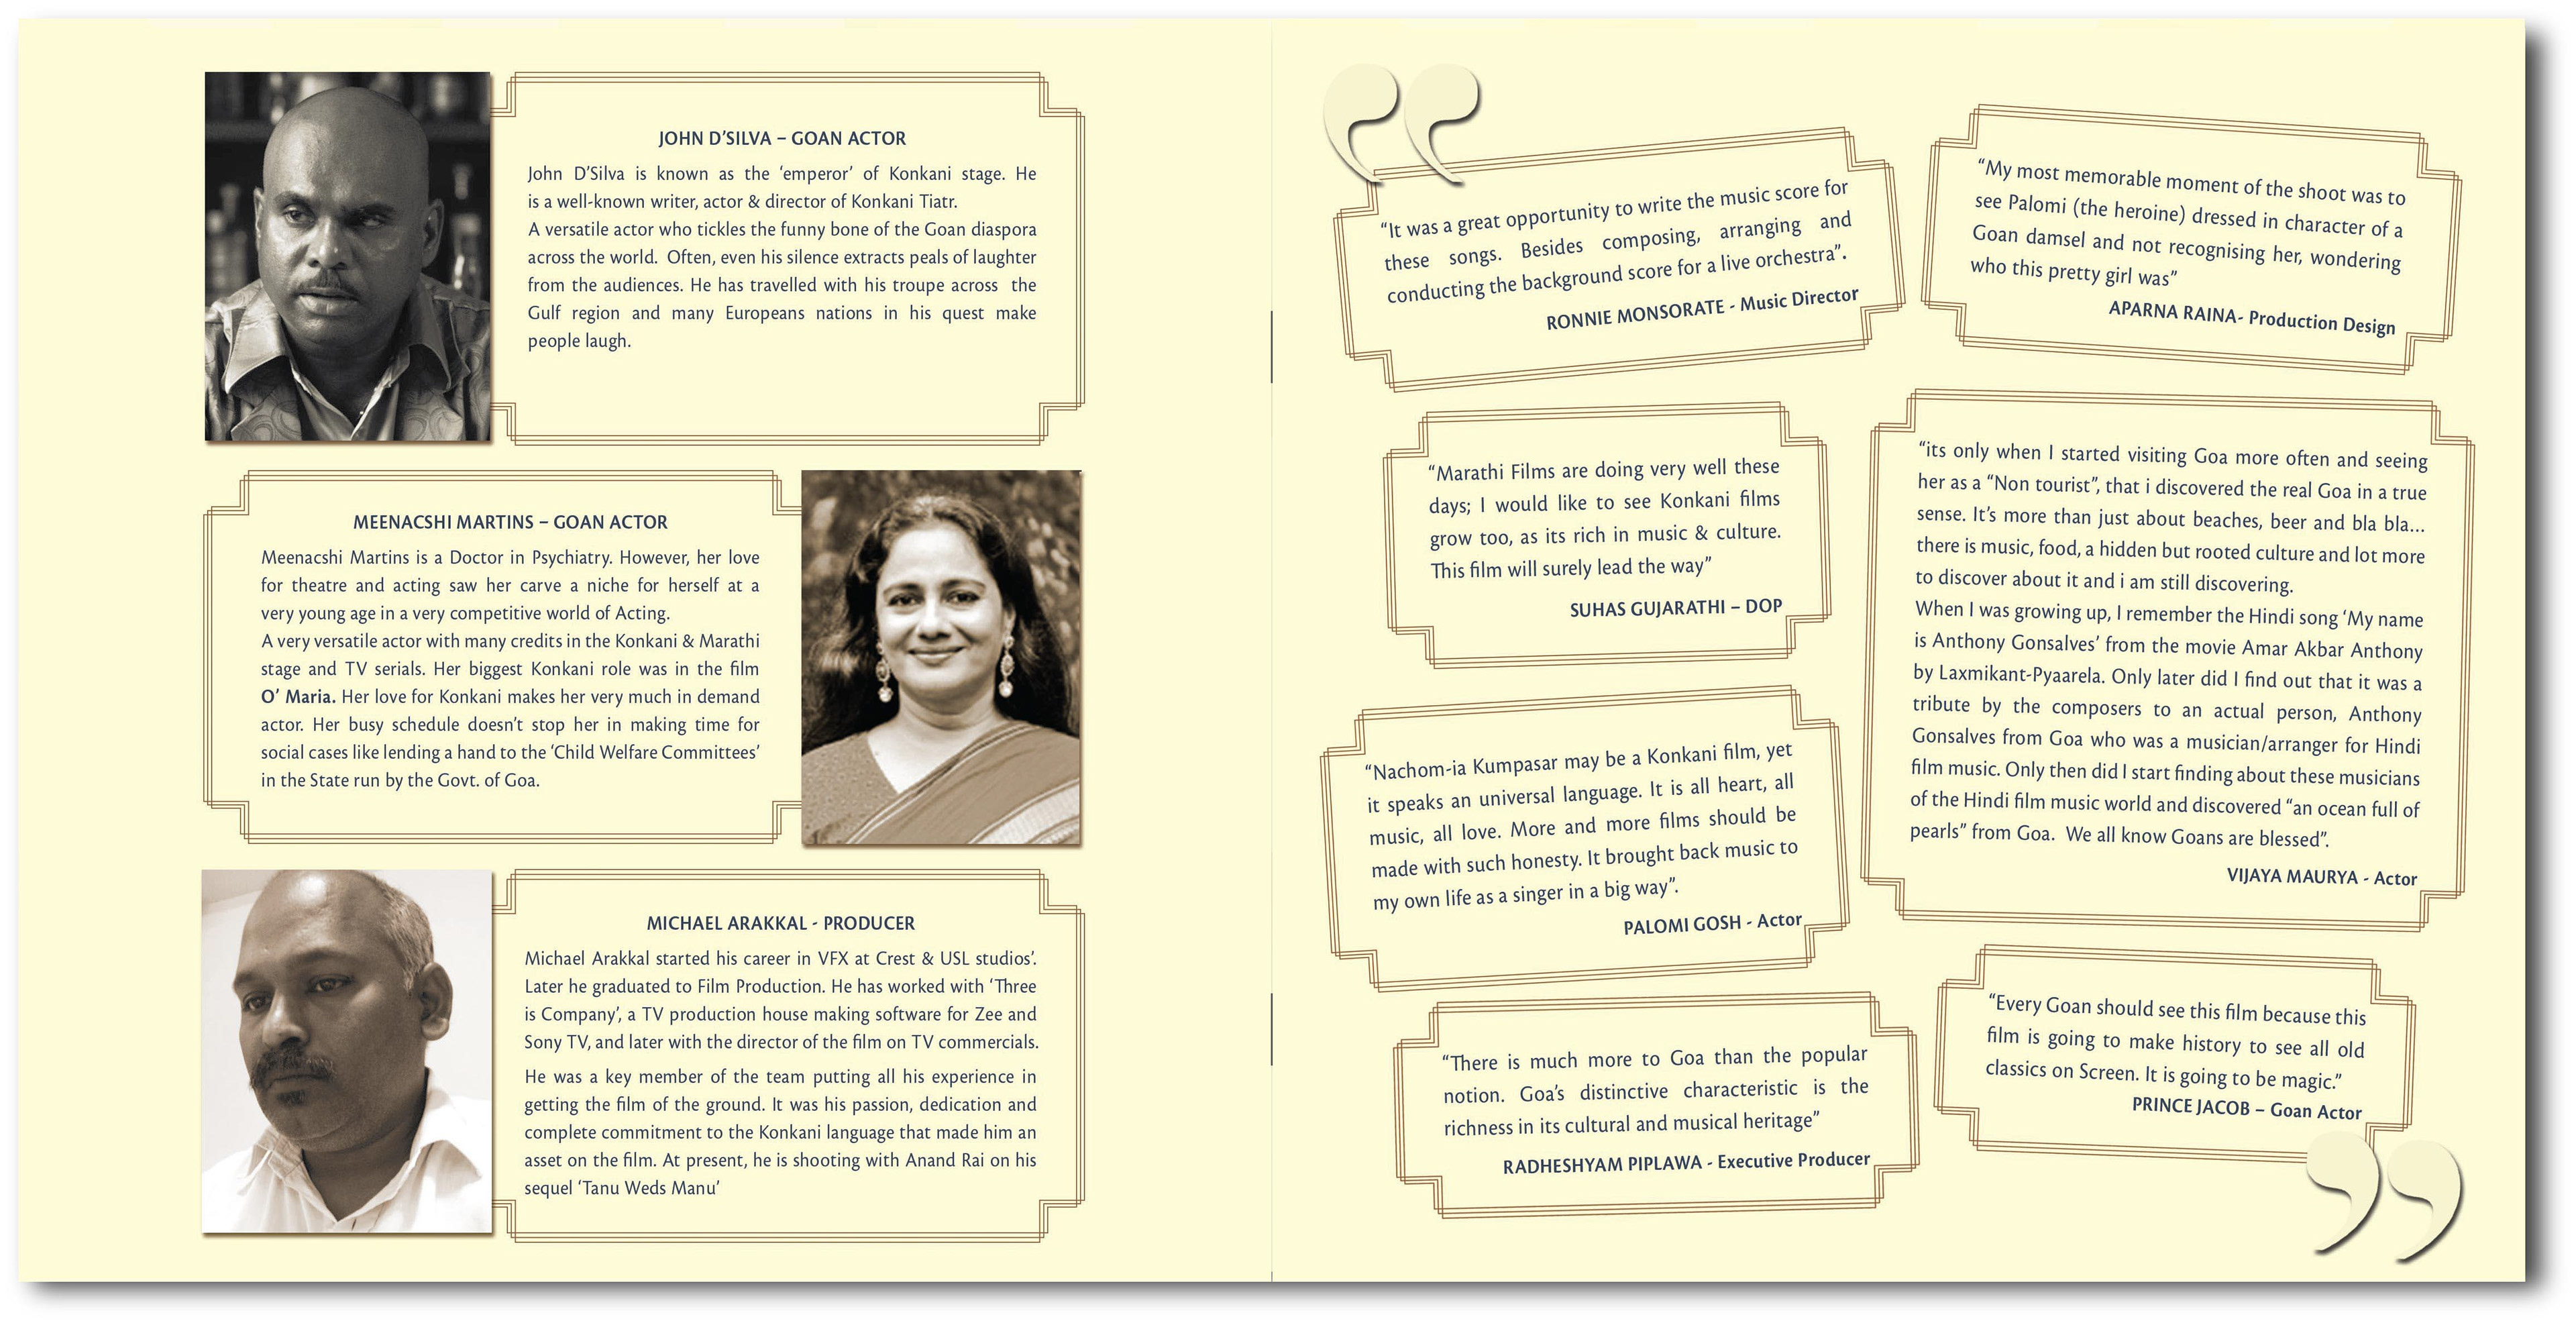 JOHN D'SILVA – GOAN ACTOR
John D'Silva is known as the 'emperor' of Konkani stage. He
is a well-known writer, actor & director of Konkani Tiatr.
A versatile actor who tickles the funny bone of the Goan diaspora
across the world. Often, even his silence extracts peals of laughter
from the audiences. He has travelled with his troupe across the
Gulf region and many Europeans nations in his quest make
people laugh.
MEENACSHI MARTINS – GOAN ACTOR
Meenacshi Martins is a Doctor in Psychiatry. However, her love
for theatre and acting saw her carve a niche for herself at a
very young age in a very competitive world of Acting.
A very versatile actor with many credits in the Konkani & Marathi
stage and TV serials. Her biggest Konkani role was in the film
O' Maria. Her love for Konkani makes her very much in demand
actor. Her busy schedule doesn't stop her in making time for
social cases like lending a hand to the 'Child Welfare Committees'
in the State run by the Govt. of Goa.
MICHAEL ARAKKAL - PRODUCER
Michael Arakkal started his career in VFX at Crest & USL studios'.
Later he graduated to Film Production. He has worked with 'Three
is Company', a TV production house making software for Zee and
Sony TV, and later with the director of the film on TV commercials.
He was a key member of the team putting all his experience in
getting the film of the ground. It was his passion, dedication and
complete commitment to the Konkani language that made him an
asset on the film. At present, he is shooting with Anand Rai on his
sequel 'Tanu Weds Manu'
"It was a great opportunity to write the music score for
these songs. Besides composing, arranging and
conducting the background score for a live orchestra".
RONNIE MONSORATE - Music Director
"My most memorable moment of the shoot was to
see Palomi (the heroine) dressed in character of a
Goan damsel and not recognising her, wondering
who this pretty girl was"
APARNA RAINA- Production Design
"Marathi Films are doing very well these
days; I would like to see Konkani films
grow too, as its rich in music & culture.
This film will surely lead the way"
SUHAS GUJARATHI – DOP
"its only when I started visiting Goa more often and seeing
her as a "Non tourist", that i discovered the real Goa in a true
sense. It's more than just about beaches, beer and bla bla...
there is music, food, a hidden but rooted culture and lot more
to discover about it and i am still discovering.
When I was growing up, I remember the Hindi song 'My name
is Anthony Gonsalves' from the movie Amar Akbar Anthony
by Laxmikant-Pyaarela. Only later did I find out that it was a
tribute by the composers to an actual person, Anthony
Gonsalves from Goa who was a musician/arranger for Hindi
film music. Only then did I start finding about these musicians
of the Hindi film music world and discovered "an ocean full of
pearls" from Goa. We all know Goans are blessed".
VIJAYA MAURYA - Actor
"Nachom-ia Kumpasar may be a Konkani film, yet
it speaks an universal language. It is all heart, all
music, all love. More and more films should be
made with such honesty. It brought back music to
my own life as a singer in a big way".
PALOMI GOSH - Actor
"There is much more to Goa than the popular
notion. Goa's distinctive characteristic is the
richness in its cultural and musical heritage"
RADHESHYAM PIPLAWA - Executive Producer
"Every Goan should see this film because this
film is going to make history to see all old
classics on Screen. It is going to be magic."
PRINCE JACOB – Goan Actor